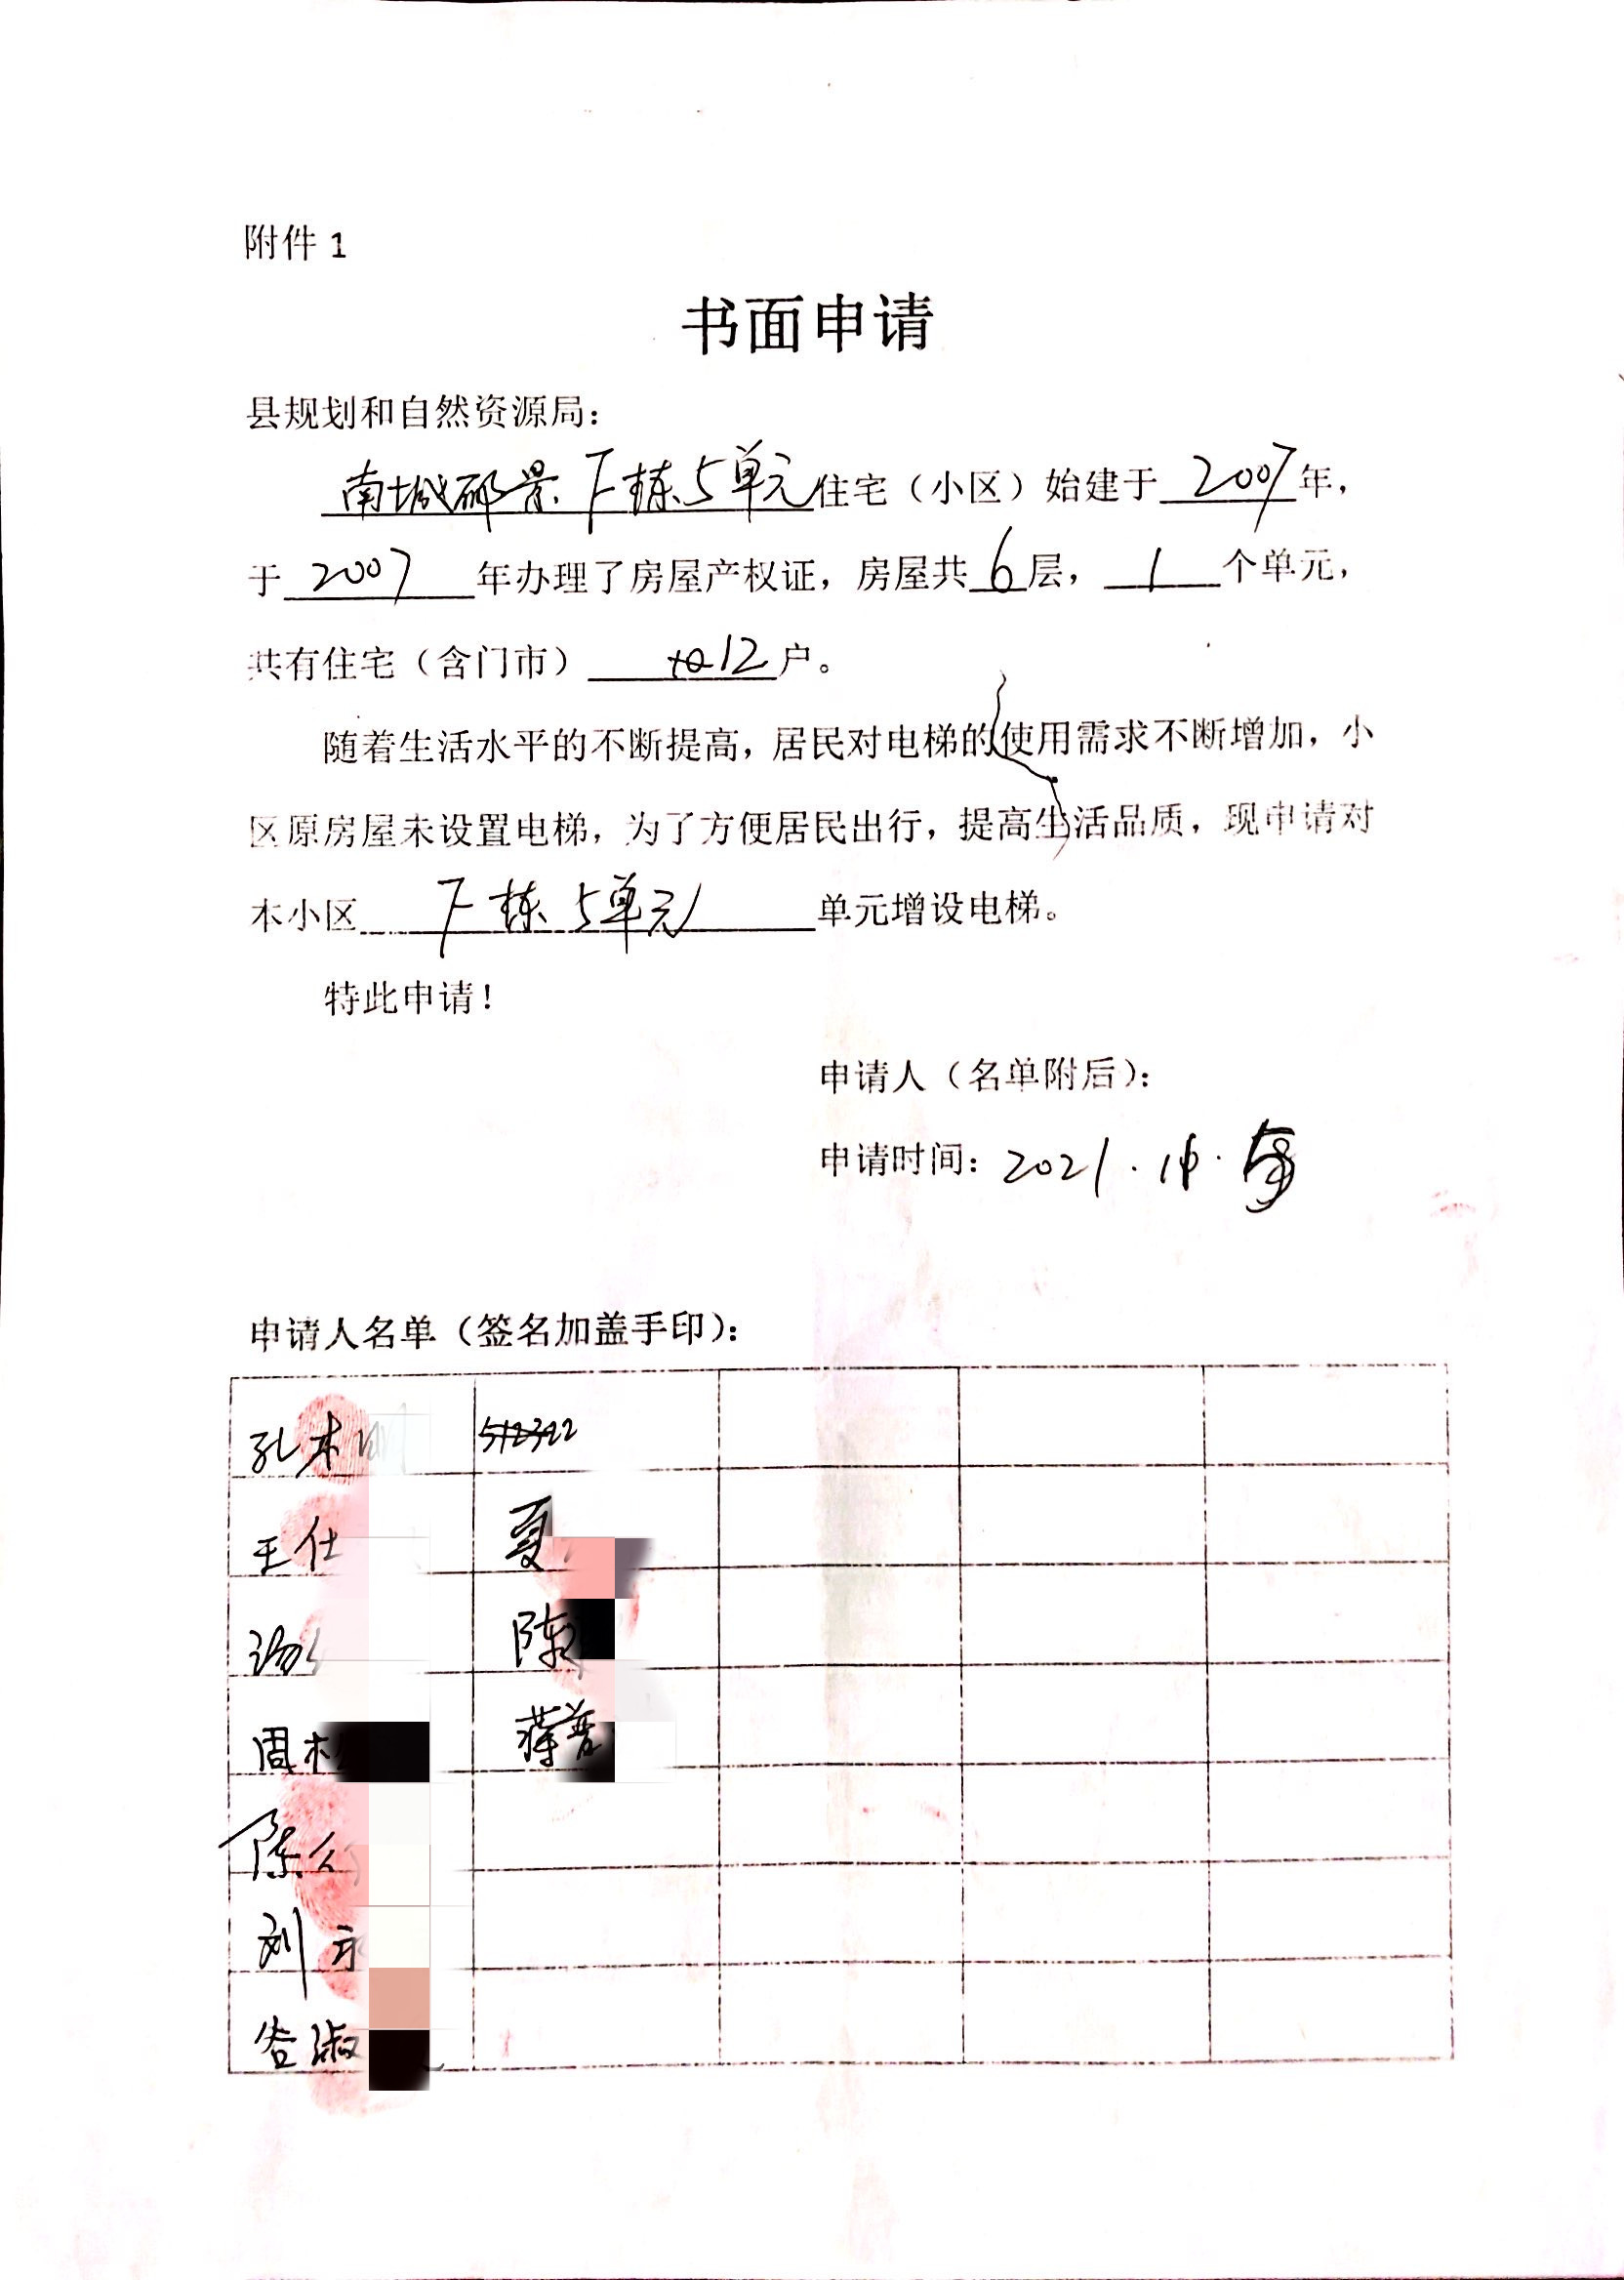 附件 1
书面申请
县规划和自然资源局：
南城郦景F栋5单元住宅（小区）始建于2007年，
于2007年办理了房屋产权证，房屋共6层，1个单元，
共有住宅（含门市）12户。
随着生活水平的不断提高，居民对电梯的使用需求不断增加，小
区原房屋未设置电梯，为了方便居民出行，提高生活品质，现申请对
本小区F栋5单元单元增设电梯。
特此申请！
申请人（名单附后）：
申请时间：2021.
申请人名单（签名加盖手印）：
孔木 512322
王仕 夏
汤 陈
周 蒋
陈
刘
淑